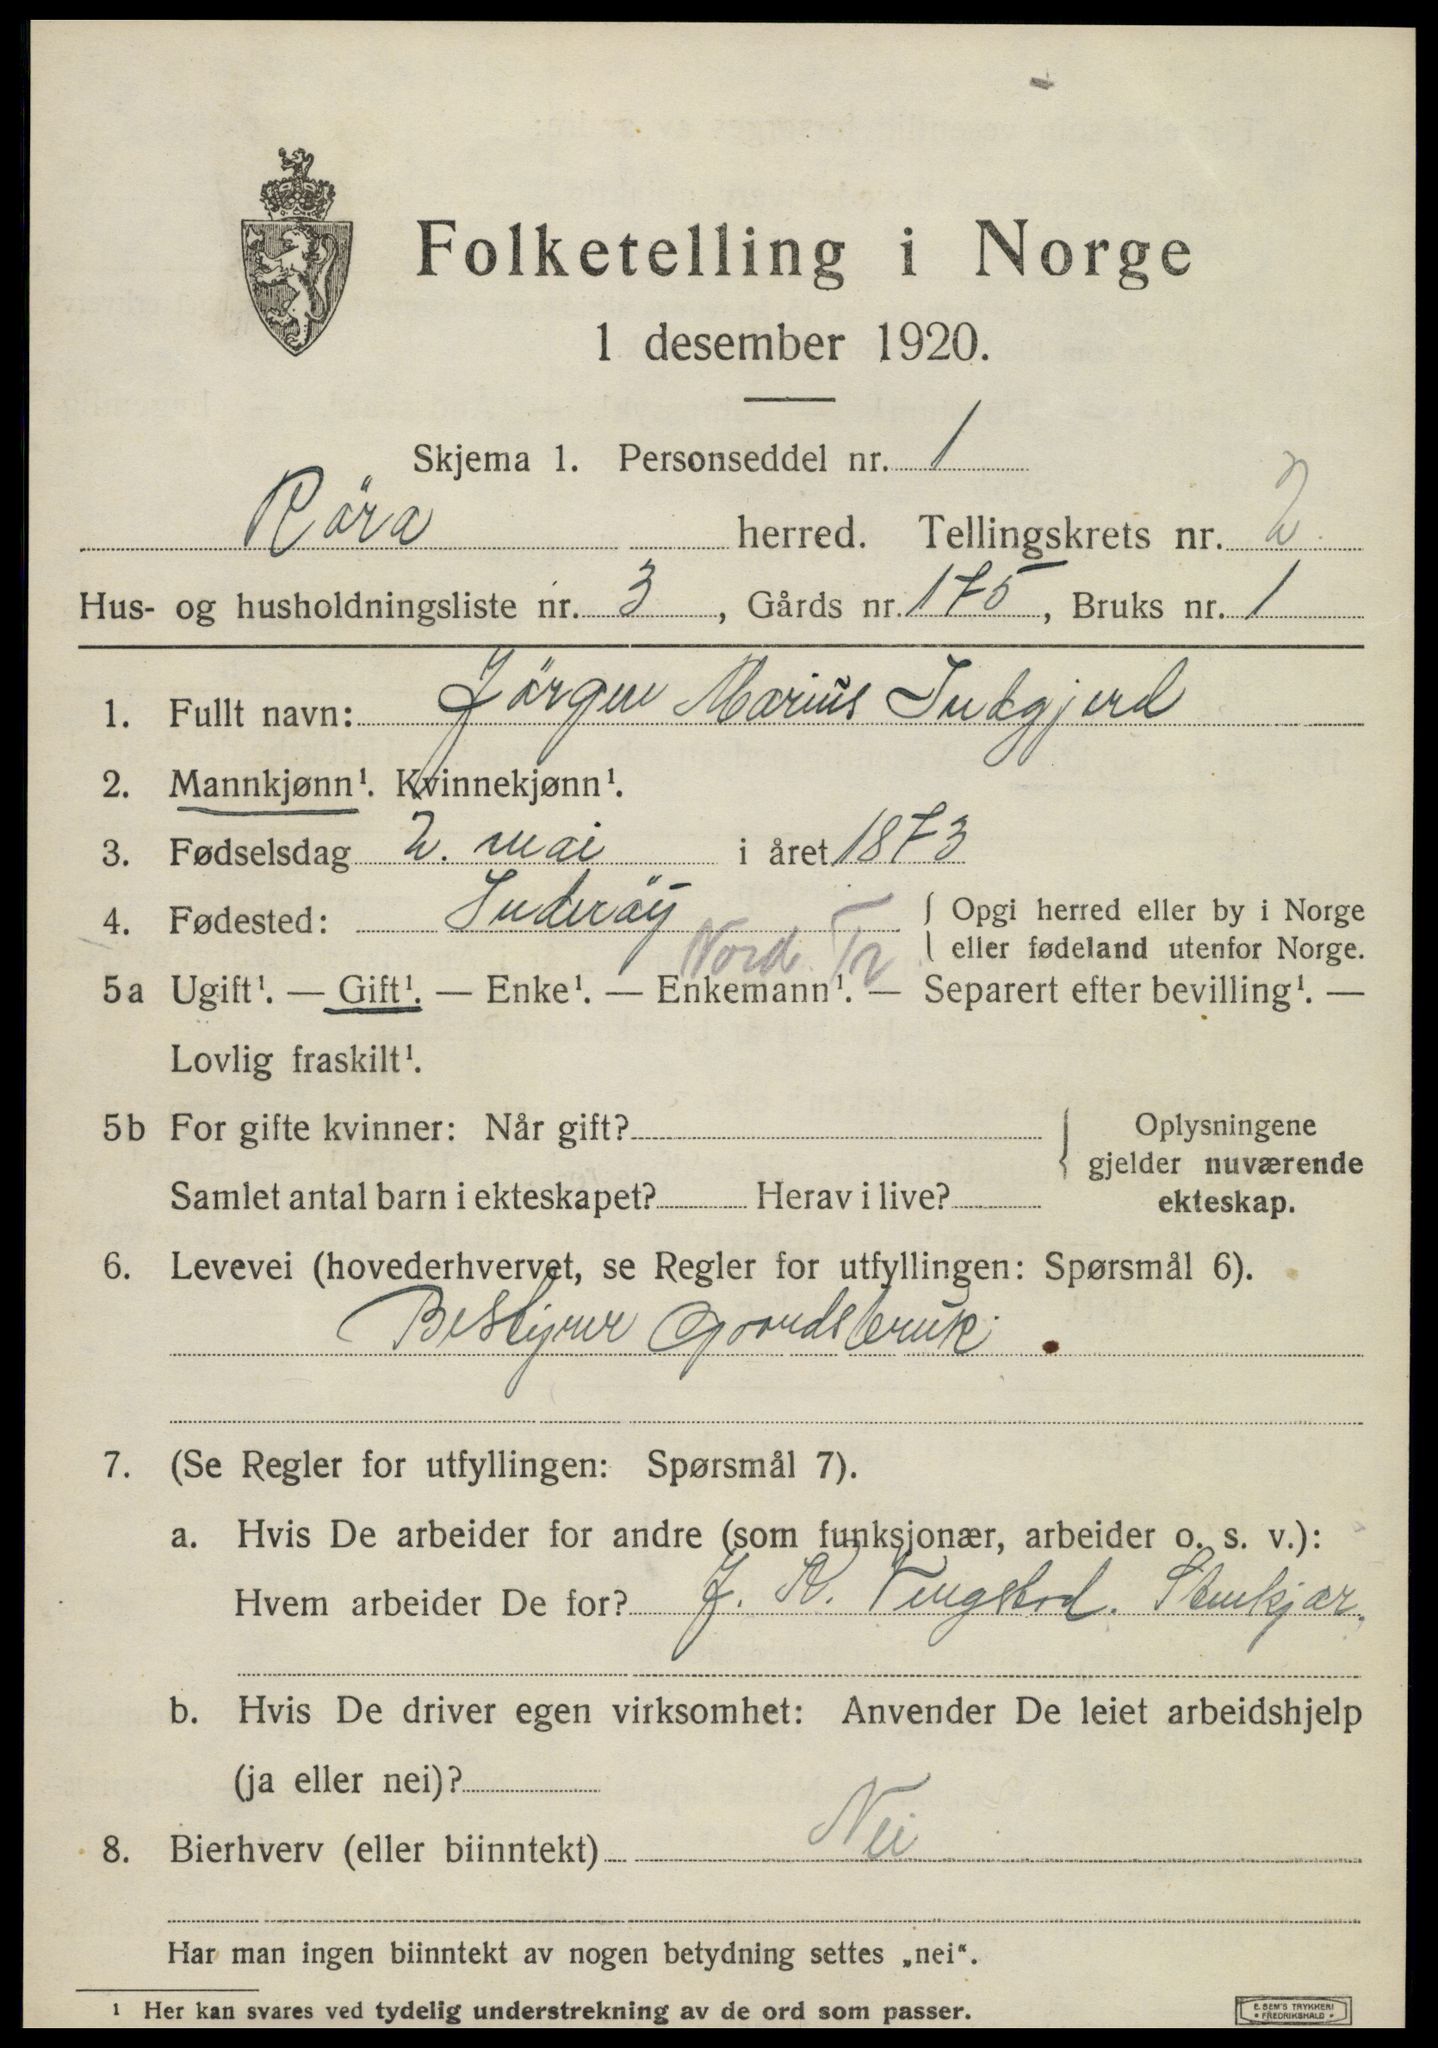 Folketelling i Norge
1 desember 1920.
Skjema 1. Personseddel nr. 1
Röra herred. Tellingskrets nr. 2
Hus- og husholdningsliste nr. 3, Gårds nr. 175, Bruks nr. 1
1. Fullt navn: Jörgen Marius Indgjerd
2. Mannkjønn¹. Kvinnekjønn¹.
3. Fødselsdag 2. mai i året 1873
4. Fødested: Inderöy { Opgi herred eller by i Norge
eller fødeland utenfor Norge.
Nord Tr
5a Ugift¹. — Gift¹. — Enke¹. — Enkemann¹. — Separert efter bevilling¹. —
Lovlig fraskilt¹.
5b For gifte kvinner: Når gift? { Oplysningene
gjelder nuværende
Samlet antal barn i ekteskapet? Herav i live? ekteskap.
6. Levevei (hovederhvervet, se Regler for utfyllingen: Spørsmål 6).
Bestyrer Gaardsbruk
7. (Se Regler for utfyllingen: Spørsmål 7).
a. Hvis De arbeider for andre (som funksjonær, arbeider o. s. v.):
Hvem arbeider De for? J. Stenkjær,
b. Hvis De driver egen virksomhet: Anvender De leiet arbeidshjelp
(ja eller nei)?
8. Bierhverv (eller biinntekt) Nei
Har man ingen biinntekt av nogen betydning settes „nei“.
¹ Her kan svares ved tydelig understrekning av de ord som passer.
E. SEM'S TRYKKERI
• FREDRIKSHALD •